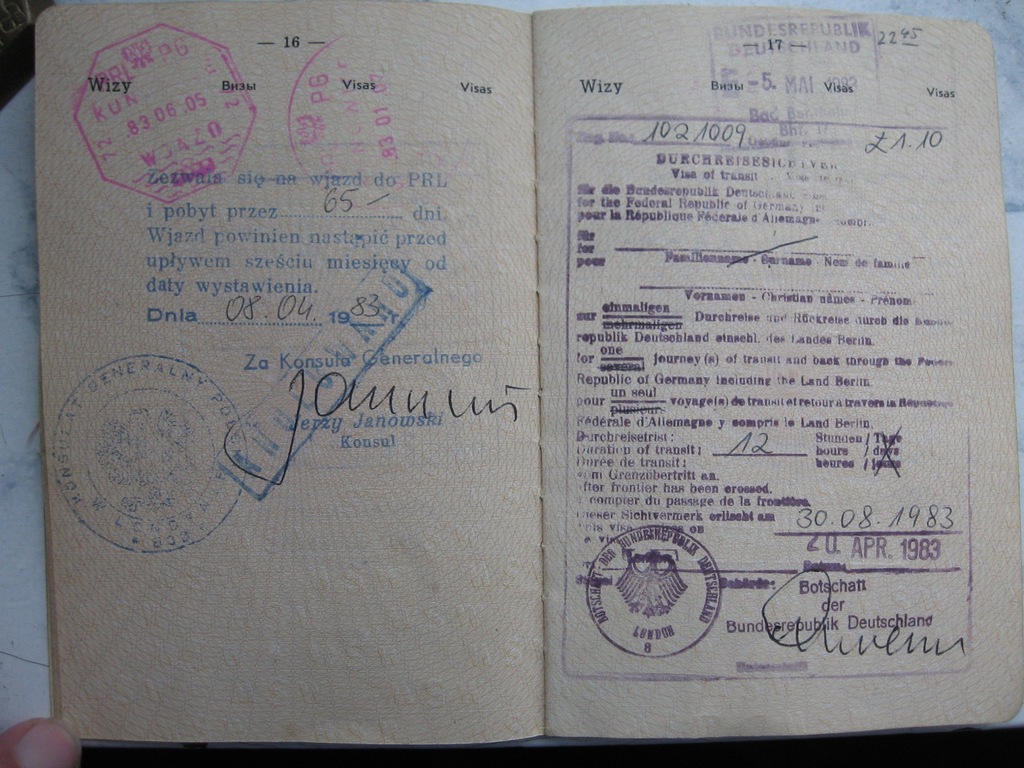 — 16 —
Wizy Визы Visas Visas
KUN
83.06.05
WJAZD
01 83
Zezwala się na wjazd do PRL
i pobyt przez 65 — dni.
Wjazd powinien nastąpić przed
upływem sześciu miesięcy od
daty wystawienia.
Dnia 08.04. 1983 r
Za Konsula Generalnego
Jerzy Janowski
Konsul
KONSULAT GENERALNY
W LONDYNIE
— 17 —
2245
BUNDESREPUBLIK
DEUTSCHLAND
-5. MAI 1983
Wizy Визы Visas Visas
Bad
Bhf.
Reg. No. 1021009 £1.10
DURCHREISESICHTVERMERK
Visa of transit
für die Bundesrepublik Deutschland
for the Federal Republic of Germany
pour la République Fédérale d'Allemagne
für
for
pour
Familienname - Surname - Nom de famille
Vornamen - Christian names - Prénom
zur einmaligen Durchreise und Rückreise durch die Bundes-
mehrmaligen
republik Deutschland einschl. des Landes Berlin.
for one journey(s) of transit and back through the Federal
several
Republic of Germany including the Land Berlin.
pour un seul voyage(s) de transit et retour à travers la République
plusieurs
Fédérale d'Allemagne y compris le Land Berlin.
Durchreisefrist: Stunden / Tage
Duration of transit: 12 hours / days
Durée de transit: heures / jours
vom Grenzübertritt an.
after frontier has been crossed.
à compter du passage de la frontière.
Dieser Sichtvermerk erlischt am 30.08.1983
20. APR. 1983
Datum
Behörde: Botschaft
der
Bundesrepublik Deutschland
BOTSCHAFT DER BUNDESREPUBLIK DEUTSCHLAND
LONDON
8
Unterschrift